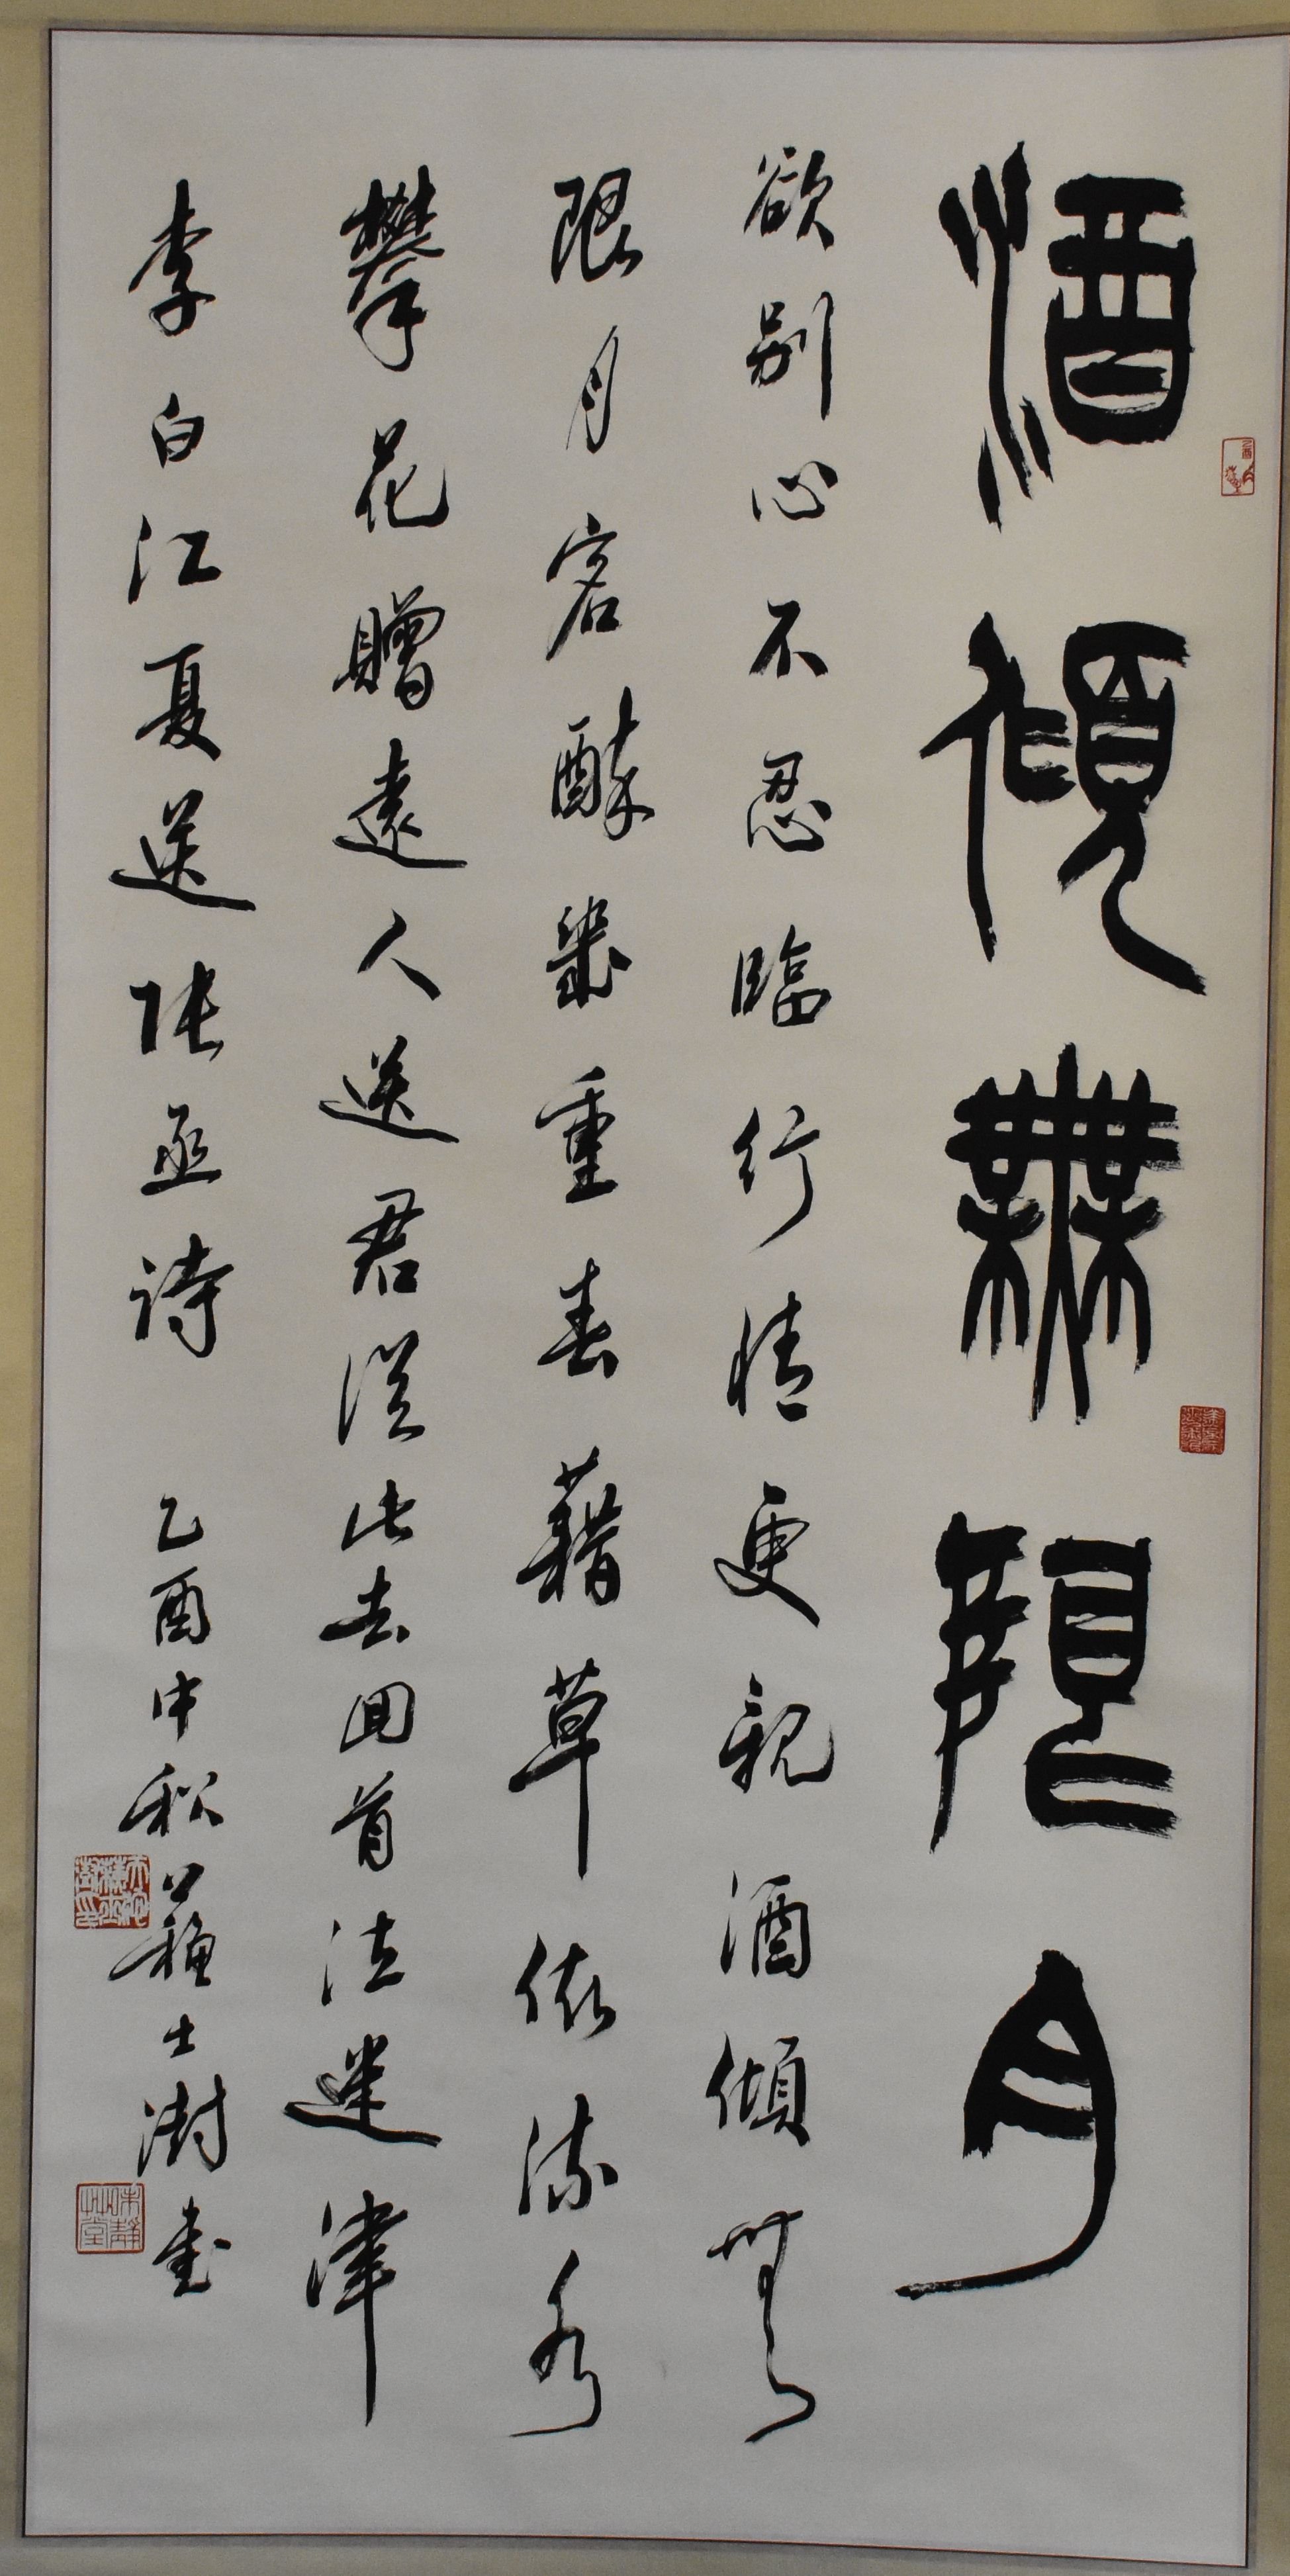 酒傾無限月
欲別心不忍臨行情更親酒傾無
限月客醉幾重春藉草依流水
攀花贈遠人送君從此去回首泣迷津
李白江夏送張丞詩 乙酉中秋 蘇士澍書